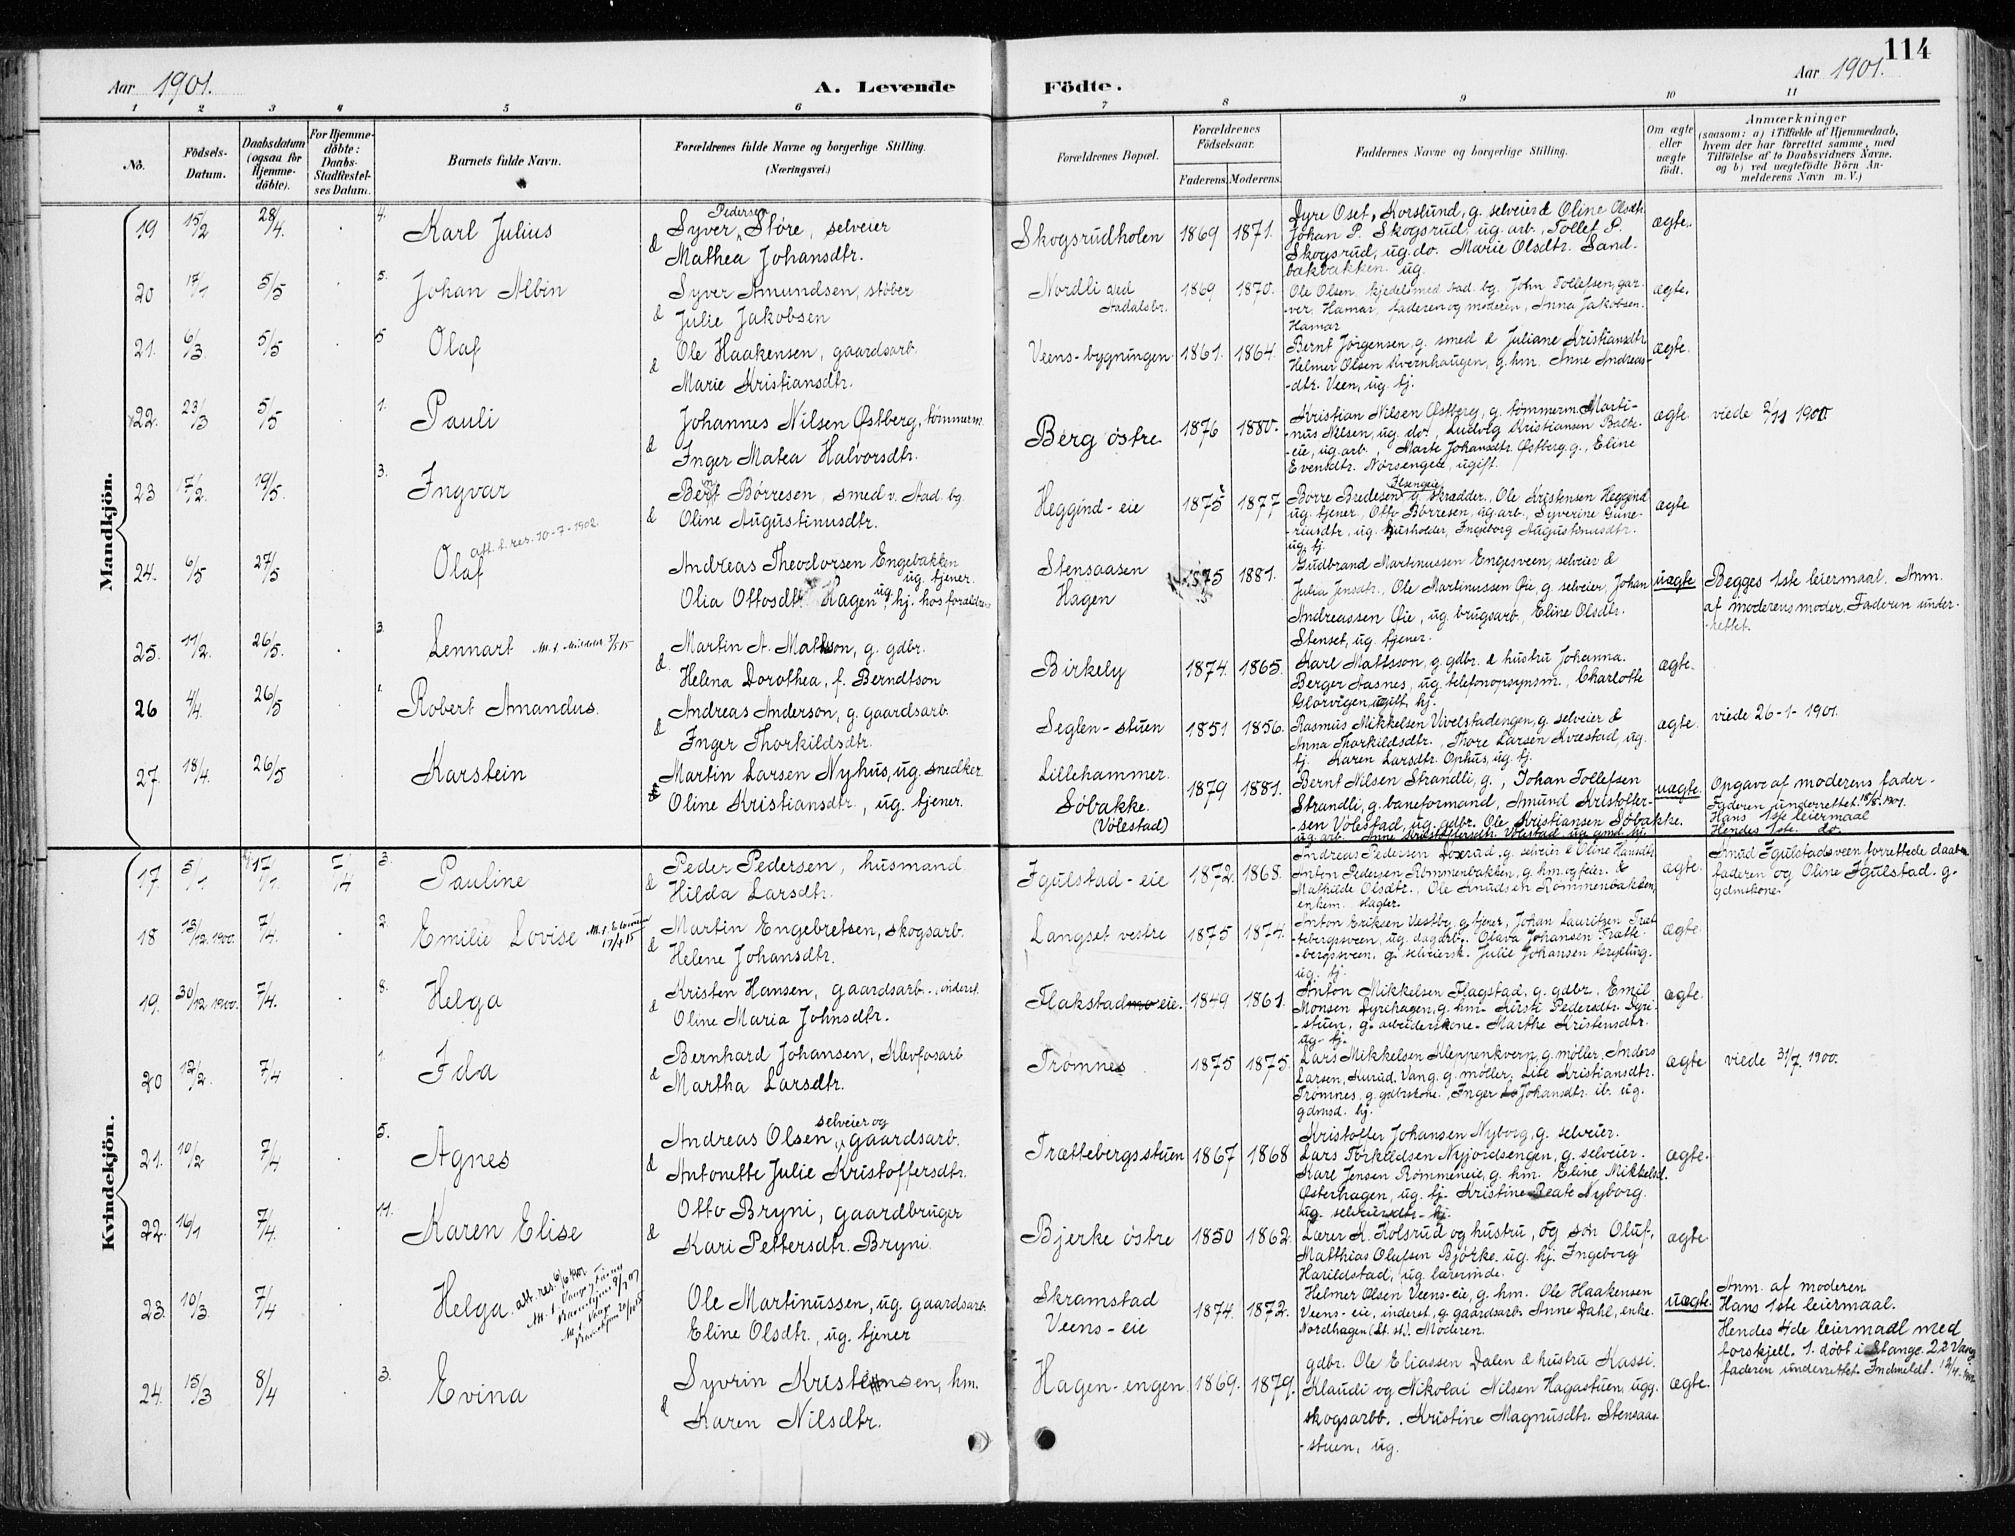 114
Aar 1901.
A. Levende Födte.
Aar 1901.
1 2 3 4 5 6 7 8 9 10 11
No.
Födsels-Datum.
Daabsdatum (ogsaa for Hjemmedöbte).
For Hjemmedöbte: Daabs-Stadfæstelses Datum.
Barnets fulde Navn.
Forældrenes fulde Navne og borgerlige Stilling. (Næringsvei.)
Forældrenes Bopæl.
Forældrenes Födselsaar.
Faderens. Moderens.
Faddernes Navne og borgerlige Stilling.
Om ægte eller uægte født.
Anmærkninger
(saasom: a) i Tilfælde af Hjemmedaab,
hvem der har forrettet samme, med
Tilföielse af to Daabsvidners Navne,
og b) ved uægtefödte Börn Anmelderens Navn m. V.)
Mandkjön.
19 15/2 28/4. 4. Karl Julius
Syver Pedersen Støre, selveier
& Mathea Johansdtr.
Skogsrudholen 1869 1871.
Dyre Oset, Korslund, g. selveier & Oline Olsdtr.
Johan P. Skogsrud, ug. arb., Tollef P.
Skogsrud, ug. do. Marie Olsdtr. Sand-
bakbakken. ug.
ægte.
20 17/1 5/5 5. Johan Albin
Syver Amundsen, støber
& Julie Jakobsen
Nordli ved Aadalsbr. 1869 1870.
Ole Olsen, kjedelsmed Aad. bg. John Tollefsen, gar-
ver, Hamar, faderen og moderen, Anna Jakobsen.
Hamar
ægte.
21. 6/3 5/5 5 Olaf
Ole Haakensen, gaardsarb.
& Marie Kristiansdtr.
Veens-bygningen 1861. 1864.
Bernt Jørgensen, g. smed & Juliane Kristiansdtr
Helmer Olsen Kvernhaugen, g. hm. Anne Andreas-
-dtr. Veen, ug. tj.
ægte.
22. 23/3 5/5 1. Pauli
Johannes Nilsen Østberg, tømmerm.
& Inger Matea Halvorsdtr.
Berg østre 1876 1880.
Kristian Nilsen Østberg, g. tømmerm. Marti-
-nus Nilsen, ug. do., Ludvig Kristiansen Bakke-
-eie, ug. arb., Marte Johansdtr. Østberg g., Eline
Evensdtr. Norsengen, ugift.
ægte. viede 2/11 1900
23 17/2. 19/5. 3. Ingvar
Bernt Børresen, smed v. Aad. bg.
& Oline Augustinusdtr.
Heggind-eie 1875 1877
Børre Bredesen g. skrædder., Ole Kristensen Heggind
ug. tjener, Otto Børresen, ug. arb., Syverine Gune-
-riusdtr., ug. husholder, Ingeborg Augustinusdtr.
ug. tj.
ægte
24. 6/5 27/5 Olaf att. t. res. 10-7-1902
Andreas Theodorsen Engebakken
ug. tjener.
Olia Ottosdtr. Hagen ug. hj. hos forældrene
Stensaasen
Hagen 1875 1881.
Gudbrand Martinussen Engesveen, selveier &
Julia Jensdtr., Ole Martinussen Øie, g. selveier, Johan
Andreassen Øie, ug. brugsarb., Eline Olsdtr.
Stenset, ug. tjener.
uægte
Begges 1ste leiermaal. Anm.
af moderens moder. Faderen under-
-rettet.
25. 11/2. 26/5. 3. Lennart
Martin A. Mattsson, g. gdbr.
& Helena Dorothea, f. Berndtson
Birkely 1874. 1865.
Karl Mattsson, g. gdbr. & hustru Johanna.
Berger Aasnes, ug. telefonopsynsm., Charlotte
Glorvigen, ugift, hj.
ægte.
26 4/4. 26/5 1. Robert Amandus.
Andreas Anderson, g. gaardsarb.
& Inger Thorkildsdtr.
Seglen-stuen 1851 1856.
Rasmus Mikkelsen Uvelstadengen, g. selveier &
Anna Thorkildsdtr., Thore Larsen Kvæstad, ug.
tj. Karen Larsdtr. Ophus, ug. tj.
ægte. viede 26-1-1901.
27. 18/4. 26/5 Karstein
Martin Larsen Nyhus, ug. snedker.
Oline Kristiansdtr., ug. tjener.
Lillehammer.
Søbakke.
(Vølestad) 1879 1881.
Bernt Nilsen Strandli, g., Johan Tollefsen
Strandli, g. baneformand, Amund Kristoffer-
-sen Vølestad, ug. gdbr. Ole Kristiansen Søbakke.
ug. arb. Anne Kristoffersdtr. Vølestad ug. gmd. hj.
uægte.
Opgave af moderens fader.
Faderen underrettet 18/5.1901.
Hans 1ste leiermaal
Hendes 1ste do.
Kvindekjön.
17 5/1 17/1. 7/4 3. Pauline
Peder Pedersen, husmand
& Hilda Larsdtr.
Igulstad-eie 1872. 1868.
Andreas Pedersen Loxrud, g. selveier & Oline Hansdtr.
Anton Pedersen Rømmenbakken, g. hm. og feier. &
Mathilde Olsdtr., Ole Knudsen Rømmenbakken,
enkem. slagter.
ægte.
Knud Igulstadsveen forrettede daaben
faderen og Oline Igulstad. g.
gdmskone.
18 13/12 1900. 7/4. 2. Emilie Lovise
Martin Engebretsen, skogsarb.
& Helene Johansdtr.
Langset vestre 1875 1874.
Anton Eriksen Vestby, g. tjener, Johan Lauritzen Træt-
-tebergsveen, ug. dagarb., Olava Johansen Trætte-
-bergsveen, g. selveiersk. Julie Johansen Grylling.
ug. tj.
ægte.
19. 30/12 1900. 7/4. 8. Helga
Kristen Hansen, gaardsarb. inderst.
& Oline Maria Johnsdtr.
Flakstad eie. 1849 1861.
Anton Mikkelsen Flagstad, g. gdbr. Emil
Monsen Dyrihagen, g. hm. Kristi Pedersdtr. Dyri-
-stuen, g. arbeiderskone. Marthe Kristensdtr.
ug. tj.
ægte.
20 12/2. 7/4 1. Ida
Bernhard Johansen, Klevfosarb
& Martha Larsdtr.
Tromnes 1875 1875.
Lars Mikkelsen Kleppenkvern, g. møller, Anders
Larsen, Kurud, Vang. g. møller, Lise Kristiansdtr.
Tromnes, g. gdbrskone., Inger Johansdtr. ib. ug.
gdmsd. hj.
ægte viede 31/7. 1900.
21. 10/2 7/4 5. Agnes
Andreas Olsen, selveier og gaardsarb.
& Antonette Julie Kristoffersdtr.
Trættebergsstuen 1867 1868
Kristoffer Johansen Nyborg, g. selveier.
Lars Torkildsen Nyjordsengen, g. selveier.
Karl Jensen Rømmeneie, g. hm. Eline Mikkelsd.
Østerhagen, ug. tj. Kristine Beate Nyborg.
ug. selveiersdtr. hj.
ægte.
22. 16/1 7/4. 11. Karen Elise
Otto Bryni, gaardbruger
& Kari Pettersdtr. Bryni.
Bjerke østre 1850 1862.
Lærer K. Kolsrud og hustru, og søn Oluf,
Matthias Olufsen Bjørke. ug. hj. Ingeborg
Harildstad, ug. lærerinde.
ægte
23. 10/3 7/4 Helga. att. res.
Ole Martinussen, ug. gaardsarb.
Eline Olsdtr., ug. tjener
Skramstad
Veens-eie 1874. 1872.
Helmer Olsen Veens-eie, g. hm. Ole Haakensen
Veens-eie, inderst, g. gaardsarb. Anne Dahl, enke.
Nordhagen (Lt. st.). Moderen.
uægte.
Anm. af moderen
Hans 1ste leiermaal.
Hendes 4de leiermaal med
forskjell. 1. døbt i Stange. 2 i Vang
faderen underrettet. Indmeldt.
24. 15/3 8/4 3. Evina
Syvrin Kristensen, hm.
& Karen Nilsdtr.
Hagen-engen 1869. 1879.
gdbr. Ole Eliassen Dalen & hustru Kassi.
Klaudi og Nikolai Nilsen Hagastuen, ugg.
skogsarbb. Kristine Magnusdtr. Stensaas-
-stuen, ug.
ægte.